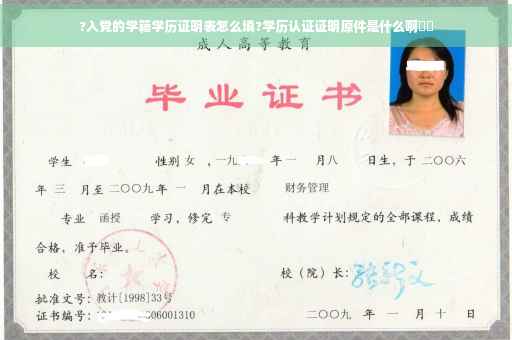 ?入党的学籍学历证明表怎么填?学历认证证明原件是什么啊
成人高等教育
毕业证书
学生 性别 女 ,一九 年 一 月八 日生,于 二〇〇六
年 三 月至 二〇〇九 年 一 月在本校 财务管理
专业 函授 学习,修完 专 科教学计划规定的全部课程,成绩
合格,准予毕业。
校 名: 校(院)长:
批准文号:教计[1998]33号
证书编号: 06001310 二〇〇九 年 一 月 十 日